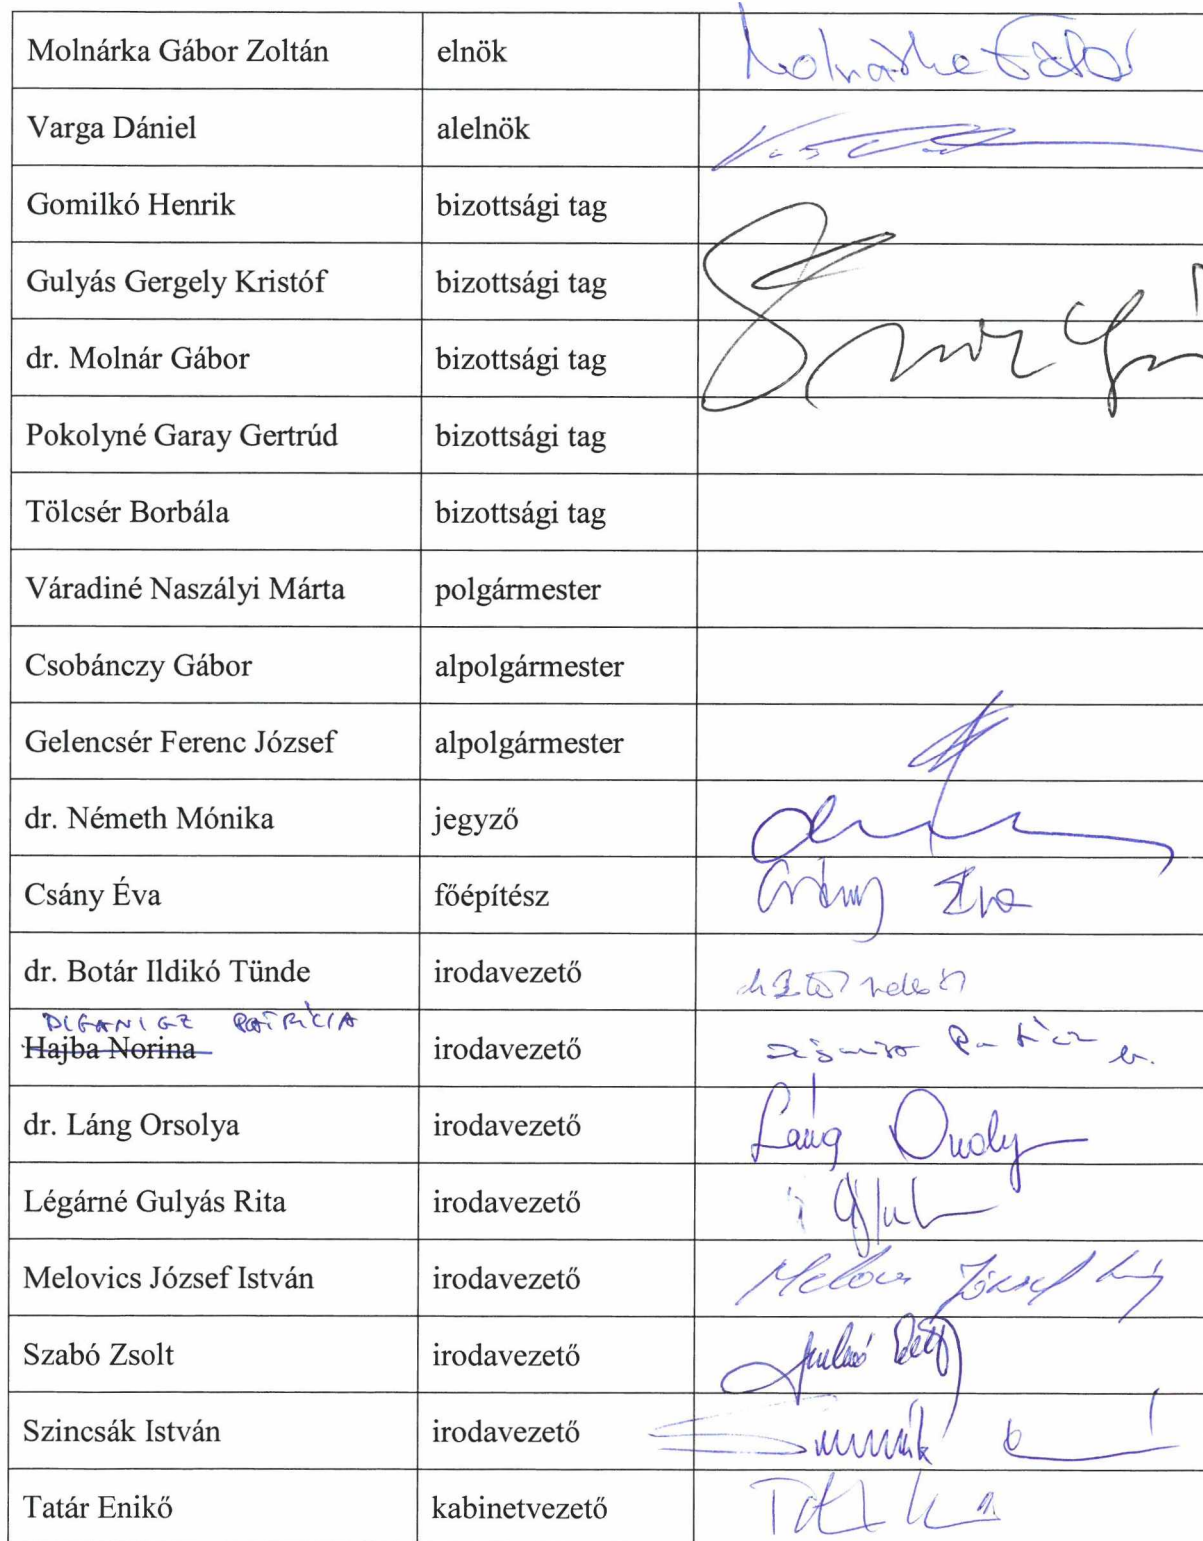 Molnárka Gábor Zoltán elnök Molnárka Gábor
Varga Dániel alelnök
Gomilkó Henrik bizottsági tag
Gulyás Gergely Kristóf bizottsági tag
dr. Molnár Gábor bizottsági tag
Pokolyné Garay Gertrúd bizottsági tag
Tölcsér Borbála bizottsági tag
Váradiné Naszályi Márta polgármester
Csobánczy Gábor alpolgármester
Gelencsér Ferenc József alpolgármester
dr. Németh Mónika jegyző
Csány Éva főépítész Csány Éva
dr. Botár Ildikó Tünde irodavezető
PATRÍCIA
Hajba Norina irodavezető
dr. Láng Orsolya irodavezető Láng Orsolya
Légárné Gulyás Rita irodavezető
Melovics József István irodavezető Melovics József
Szabó Zsolt irodavezető
Szincsák István irodavezető
Tatár Enikő kabinetvezető